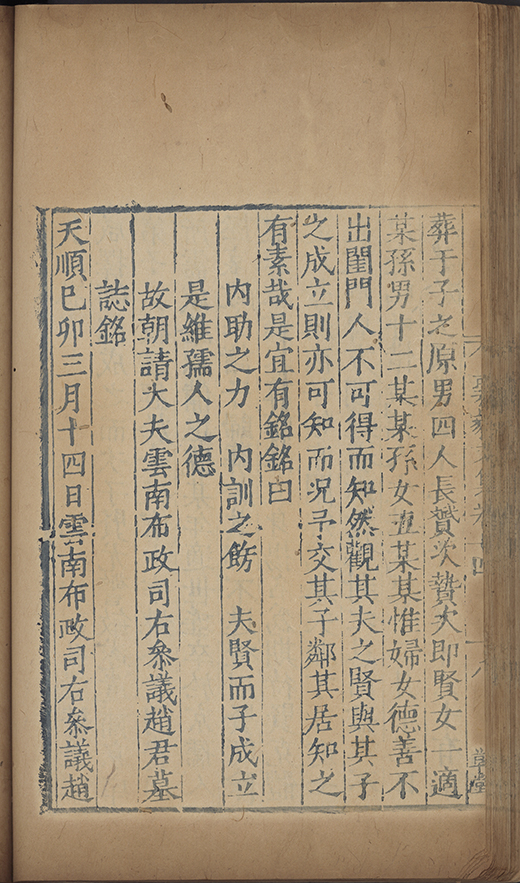 文集卷十四
葬于子之原男四人長贇次贊次即賢女一適
某孫男十二某某孫女五某某惟婦女德善不
出閨門人不可得而知然觀其夫之賢與其子
之成立則亦可知而况予交其子鄰其居知之
有素哉是宜有銘銘曰
内助之力　内訓之飭　夫賢而子成立
是維孺人之德
故朝請大夫雲南布政司右叅議趙君墓
誌銘
天順己卯三月十四日雲南布政司右叅議趙